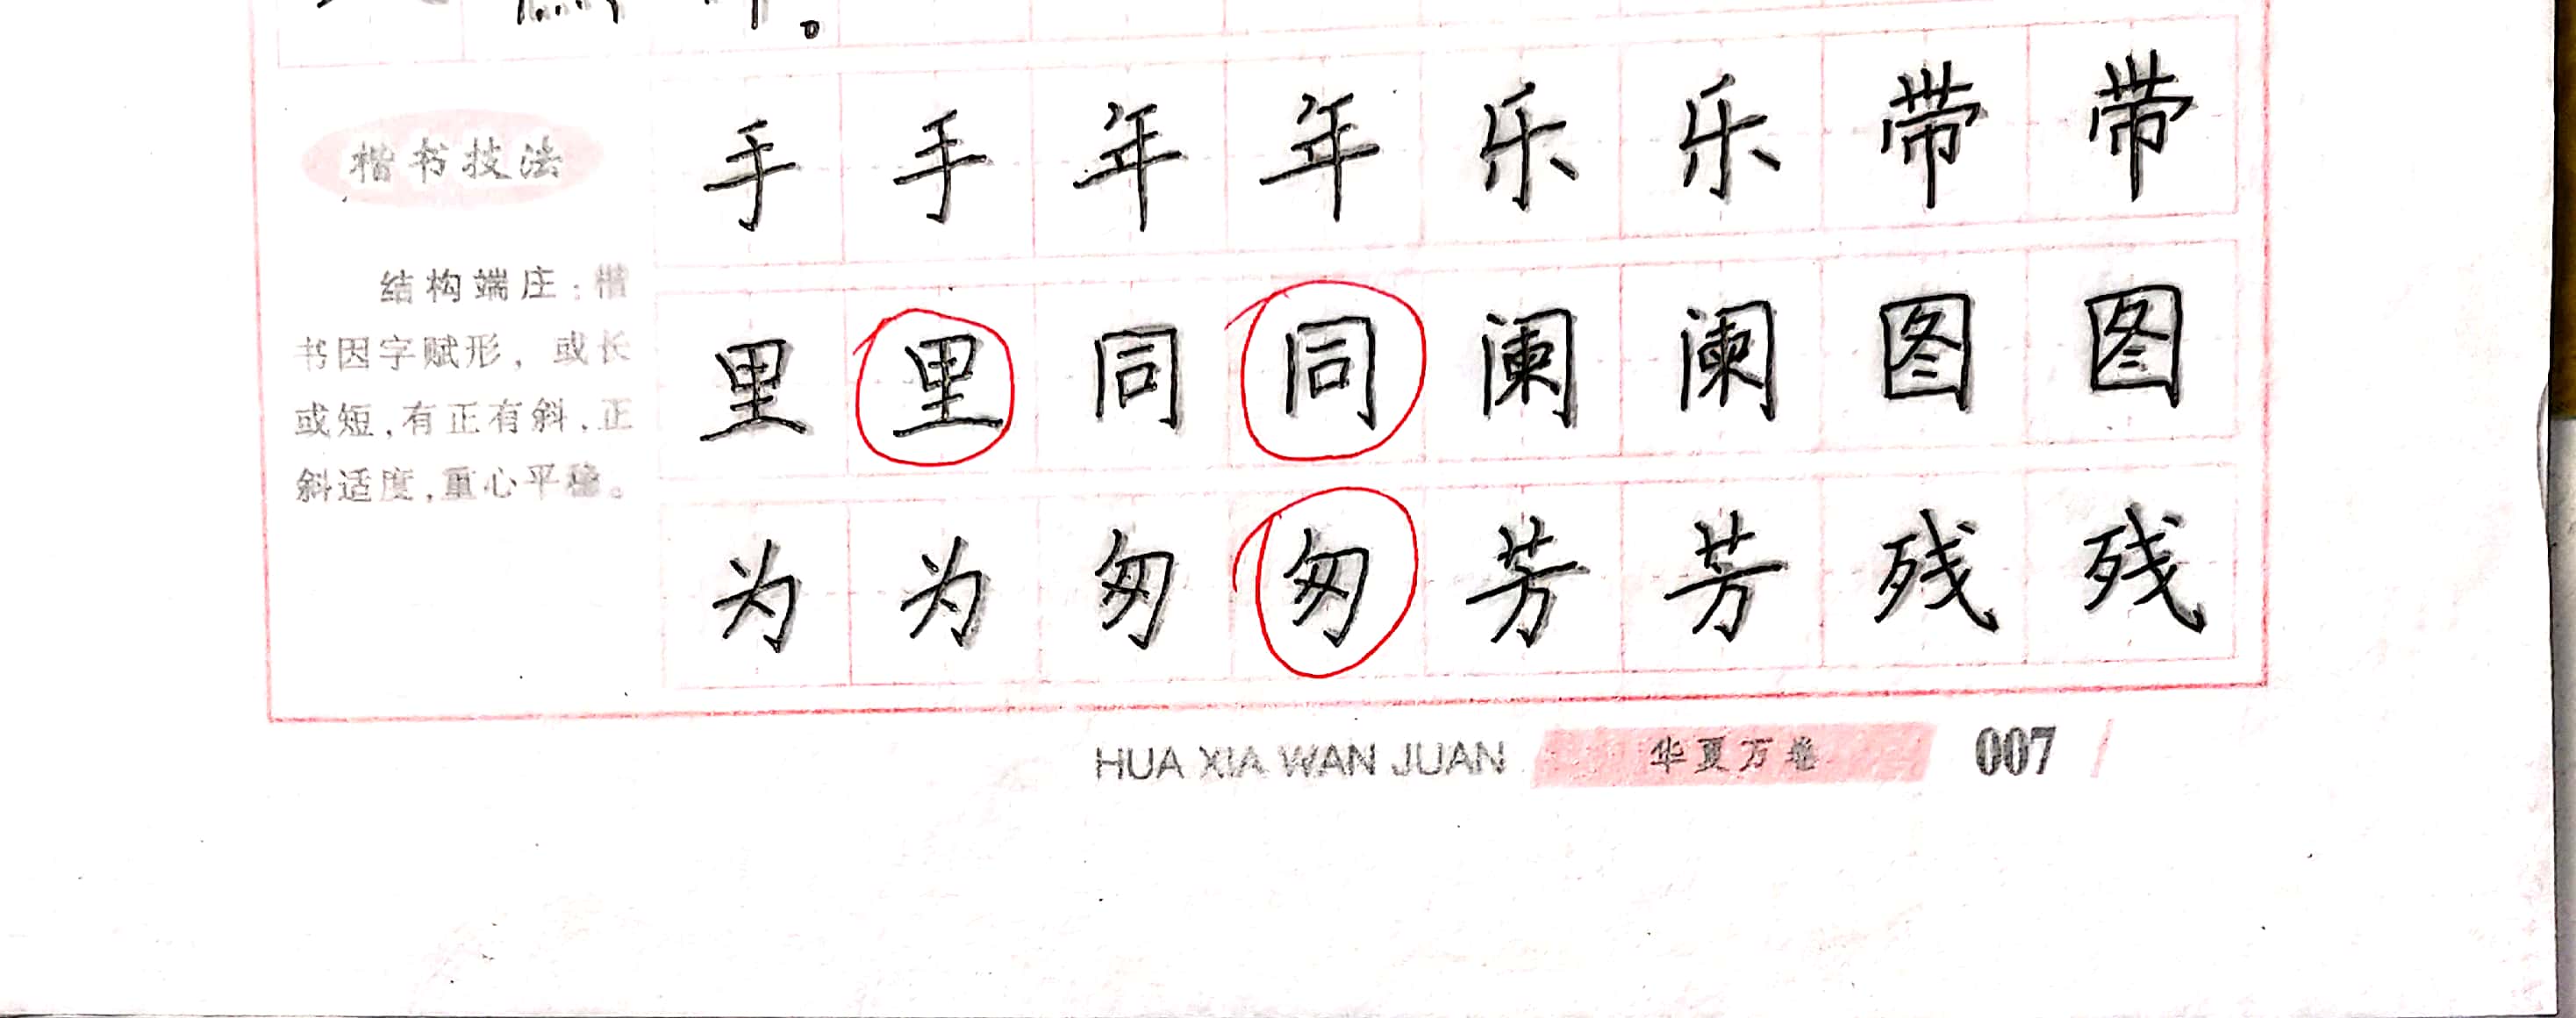 楷书技法
结构端庄：楷
书因字赋形，或长
或短，有正有斜，正
斜适度，重心平稳。
手 手 年 年 乐 乐 带 带
里 里 同 同 阑 阑 图 图
为 为 匆 匆 芳 芳 残 残
HUA XIA WAN JUAN 华夏万卷 007